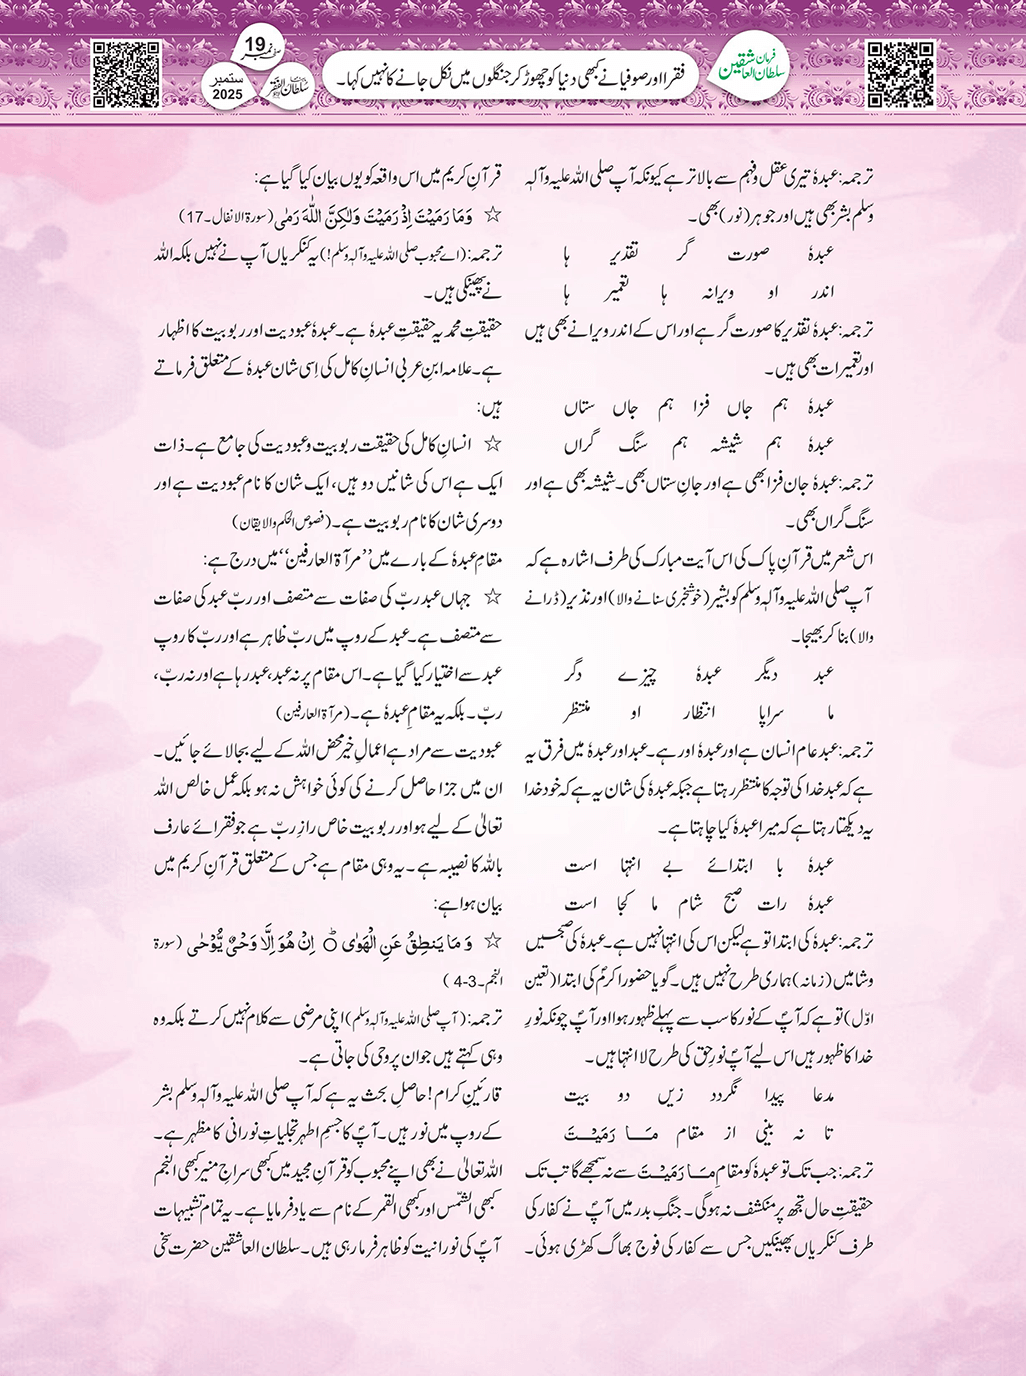 فرمان سلطان العاشقین
فقرا اور صوفیا نے کبھی دنیا کو چھوڑ کر جنگلوں میں نکل جانے کا نہیں کہا۔
صفحہ نمبر 19
ستمبر 2025
سلطان الفقر
ترجمہ: عبدہٗ تیری عقل و فہم سے بالاتر ہے کیونکہ آپ صلی اللہ علیہ وآلہٖ
وسلم بشر بھی ہیں اور جوہر (نور) بھی۔
عبدہٗ صورت گر تقدیر ہا
اندر او ویرانہ ہا تعمیر ہا
ترجمہ: عبدہٗ تقدیر کا صورت گر ہے اور اس کے اندر ویرانے بھی ہیں
اور تعمیرات بھی ہیں۔
عبدہٗ ہم جاں فزا ہم جاں ستاں
عبدہٗ ہم شیشہ ہم سنگ گراں
ترجمہ: عبدہٗ جان فزا بھی ہے اور جانِ ستاں بھی۔ شیشہ بھی ہے اور
سنگ گراں بھی۔
اس شعر میں قرآنِ پاک کی اس آیت مبارک کی طرف اشارہ ہے کہ
آپ صلی اللہ علیہ وآلہٖ وسلم کو بشیر (خوشخبری سنانے والا) اور نذیر (ڈرانے
والا) بنا کر بھیجا۔
عبد دیگر عبدہٗ چیزے دگر
ما سراپا انتظار او منتظر
ترجمہ: عبد عام انسان ہے اور عبدہٗ اور ہے۔ عبد اور عبدہٗ میں فرق یہ
ہے کہ عبد خدا کی توجہ کا منتظر رہتا ہے جبکہ عبدہٗ کی شان یہ ہے کہ خود خدا
یہ دیکھتا رہتا ہے کہ میرا عبدہٗ کیا چاہتا ہے۔
عبدہٗ با ابتدائے بے انتہا است
عبدہٗ رات صبح شام ما کجا است
ترجمہ: عبدہٗ کی ابتدا تو ہے لیکن اس کی انتہا نہیں ہے۔ عبدہٗ کی صبحیں
و شامیں (زمانہ) ہماری طرح نہیں ہیں۔ گویا حضور اکرمؐ کی ابتدا (تعین
اوّل) تو ہے کہ آپؐ کے نور کا سب سے پہلے ظہور ہوا اور آپؐ چونکہ نورِ
خدا کا ظہور ہیں اس لیے آپؐ نورِ حق کی طرح لا انتہا ہیں۔
مدعا پیدا نگردد زیں دو بیت
تا نہ بینی از مقام مَا رَمَیْتَ
ترجمہ: جب تک تو عبدہٗ کو مقامِ مَا رَمَیْتَ سے نہ سمجھے گا تب تک
حقیقتِ حال تجھ پر منکشف نہ ہو گی۔ جنگِ بدر میں آپؐ نے کفار کی
طرف کنکریاں پھینکیں جس سے کفار کی فوج بھاگ کھڑی ہوئی۔
قرآنِ کریم میں اس واقعہ کو یوں بیان کیا گیا ہے:
☆ وَمَا رَمَیْتَ اِذْ رَمَیْتَ وَلٰکِنَّ اللّٰہَ رَمٰی (سورۃ الانفال۔17)
ترجمہ: (اے محبوب صلی اللہ علیہ وآلہٖ وسلم!) یہ کنکریاں آپ نے نہیں بلکہ اللہ
نے پھینکی ہیں۔
حقیقتِ محمدیہ حقیقتِ عبدہٗ ہے۔ عبدہٗ عبودیت اور ربوبیت کا اظہار
ہے۔ علامہ ابنِ عربی انسانِ کامل کی اِسی شان عبدہٗ کے متعلق فرماتے
ہیں:
☆ انسانِ کامل کی حقیقت ربوبیت و عبودیت کی جامع ہے۔ ذات
ایک ہے اس کی شانیں دو ہیں، ایک شان کا نام عبودیت ہے اور
دوسری شان کا نام ربوبیت ہے۔ (فصوص الحکم والایقان)
مقامِ عبدہٗ کے بارے میں ’’مرآۃ العارفین‘‘ میں درج ہے:
☆ جہاں عبد ربّ کی صفات سے متصف اور ربّ عبد کی صفات
سے متصف ہے۔ عبد کے روپ میں ربّ ظاہر ہے اور ربّ کا روپ
عبد سے اختیار کیا گیا ہے۔ اس مقام پر نہ عبد، عبد رہا ہے اور نہ ربّ،
ربّ۔ بلکہ یہ مقامِ عبدہٗ ہے۔ (مرآۃ العارفین)
عبودیت سے مراد ہے اعمالِ خیر محض اللہ کے لیے بجا لائے جائیں۔
ان میں جزا حاصل کرنے کی کوئی خواہش نہ ہو بلکہ عمل خالص اللہ
تعالیٰ کے لیے ہو اور ربوبیت خاص رازِ ربّ ہے جو فقرائے عارف
باللہ کا نصیبہ ہے۔ یہ وہی مقام ہے جس کے متعلق قرآنِ کریم میں
بیان ہوا ہے:
☆ وَ مَا یَنطِقُ عَنِ الْھَوٰی ط اِنْ ھُوَ اِلَّا وَحْیٌ یُّوْحٰی (سورۃ
النجم۔3-4)
ترجمہ: (آپ صلی اللہ علیہ وآلہٖ وسلم) اپنی مرضی سے کلام نہیں کرتے بلکہ وہ
وہی کہتے ہیں جو ان پر وحی کی جاتی ہے۔
قارئینِ کرام! حاصلِ بحث یہ ہے کہ آپ صلی اللہ علیہ وآلہٖ وسلم بشر
کے روپ میں نور ہیں۔ آپؐ کا جسمِ اطہر تجلیاتِ نورانی کا مظہر ہے۔
اللہ تعالیٰ نے بھی اپنے محبوب کو قرآنِ مجید میں کبھی سراج منیر کبھی النجم
کبھی الشمّس اور کبھی القمر کے نام سے یاد فرمایا ہے۔ یہ تمام تشبیہات
آپؐ کی نورانیت کو ظاہر فرما رہی ہیں۔ سلطان العاشقین حضرت سخی